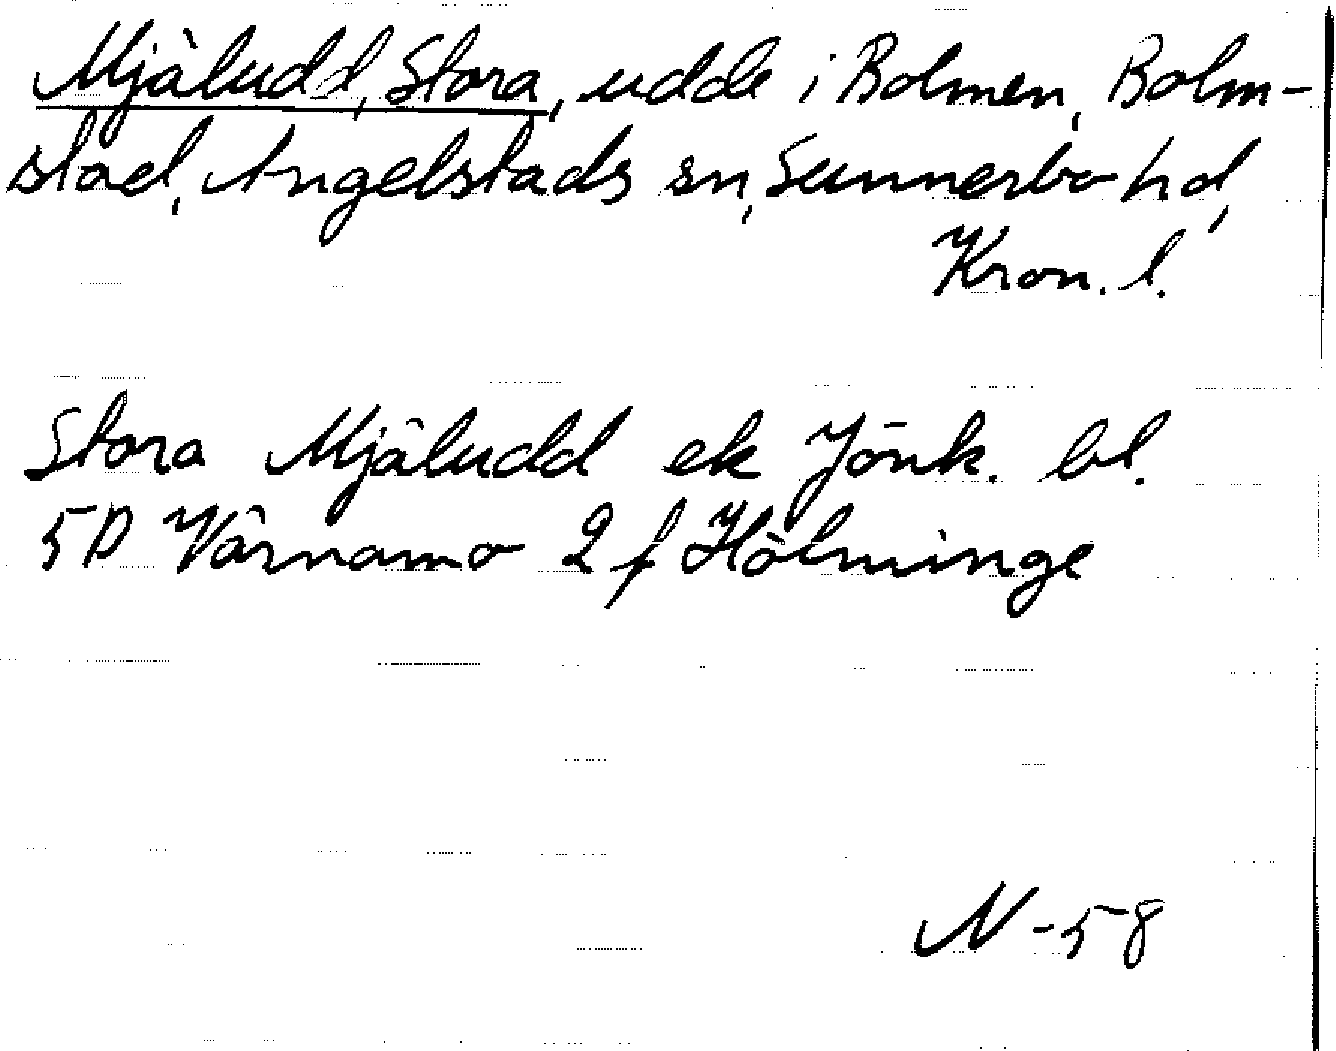 Mjäludd, Stora, udde i Bolmen, Bolm-
stad, Angelstads sn, Sunnerbo hd,
Kron. l.
Stora Mjäludd ek Jönk. bl.
5D Värnamo 2 f Hölminge
N -58